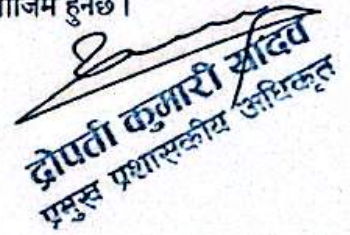 हुनेछ ।
द्रोपती कुमारी यादव
प्रमुख प्रशासकीय अधिकृत